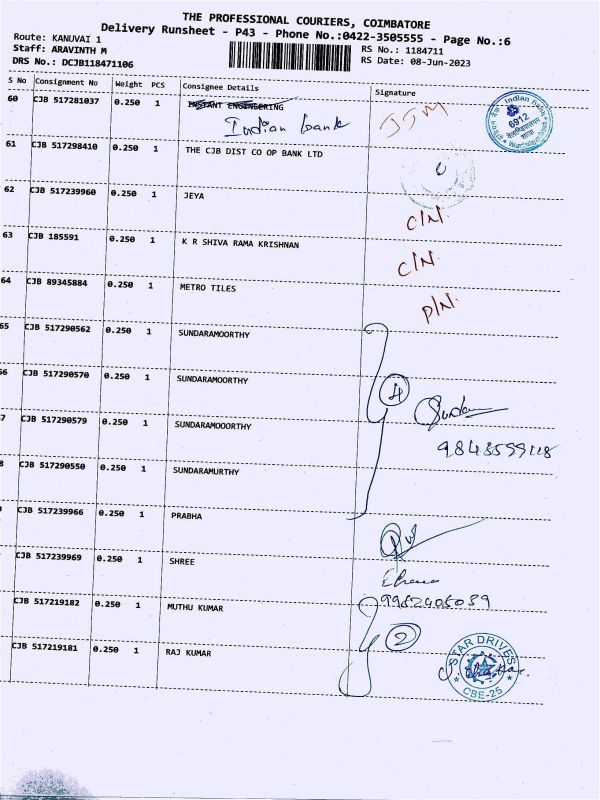 THE PROFESSIONAL COURIERS, COIMBATORE
Delivery Runsheet - P43 - Phone No.:0422-3505555 - Page No.:6
Route: KANUVAI 1
Staff: ARAVINTH M
RS No.: 1184711
DRS No.: DCJB118471106
RS Date: 08-Jun-2023
S No Consignment No Weight PCS Consignee Details Signature
60 CJB 517281037 0.250 1 INSTANT ENGINEERING
Indian bank
Indian Bank
6912
61 CJB 517298410 0.250 1 THE CJB DIST CO OP BANK LTD
62 CJB 517239960 0.250 1 JEYA C/N.
63 CJB 185591 0.250 1 K R SHIVA RAMA KRISHNAN C/N.
64 CJB 89345884 0.250 1 METRO TILES P/N.
65 CJB 517290562 0.250 1 SUNDARAMOORTHY
66 CJB 517290570 0.250 1 SUNDARAMOORTHY 4
7 CJB 517290579 0.250 1 SUNDARAMOOORTHY
9843599118
8 CJB 517290550 0.250 1 SUNDARAMURTHY
CJB 517239966 0.250 1 PRABHA
CJB 517239969 0.250 1 SHREE
9952405039
CJB 517219182 0.250 1 MUTHU KUMAR
2
CJB 517219181 0.250 1 RAJ KUMAR
STAR DRIVES
CBE-25